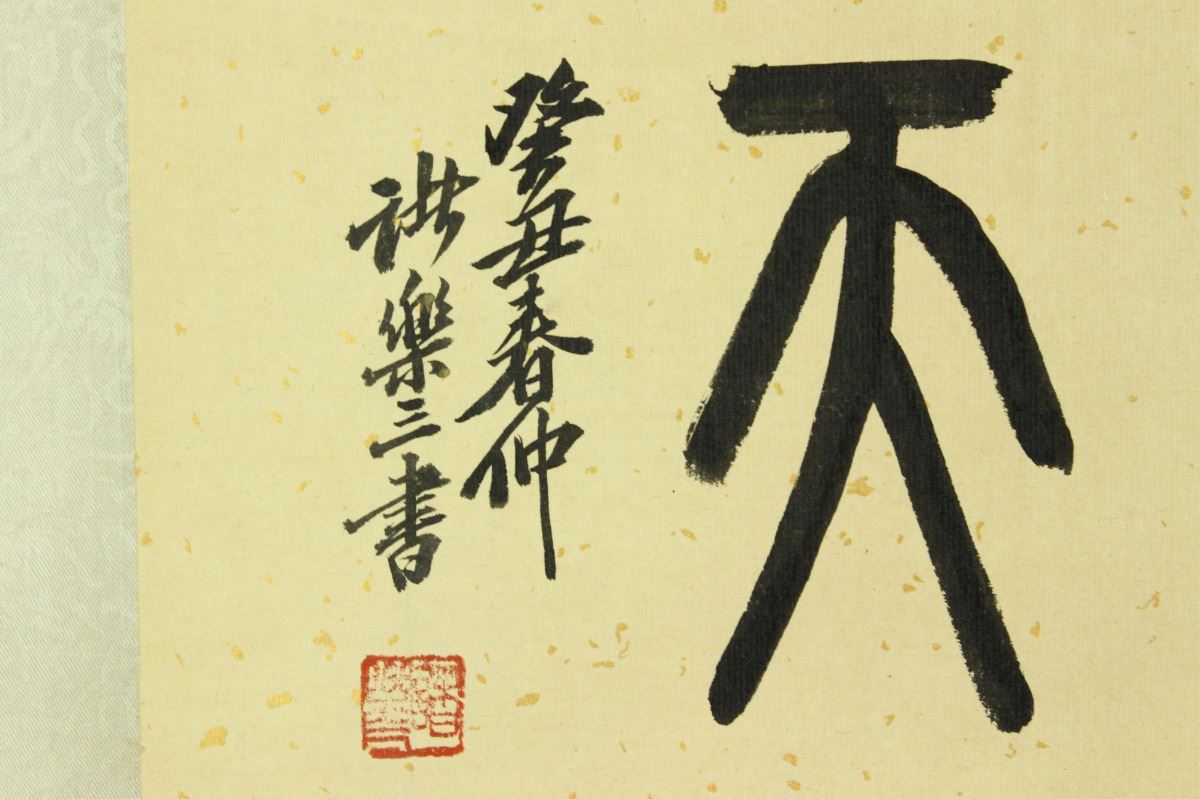 天
癸丑春仲
諸樂三書